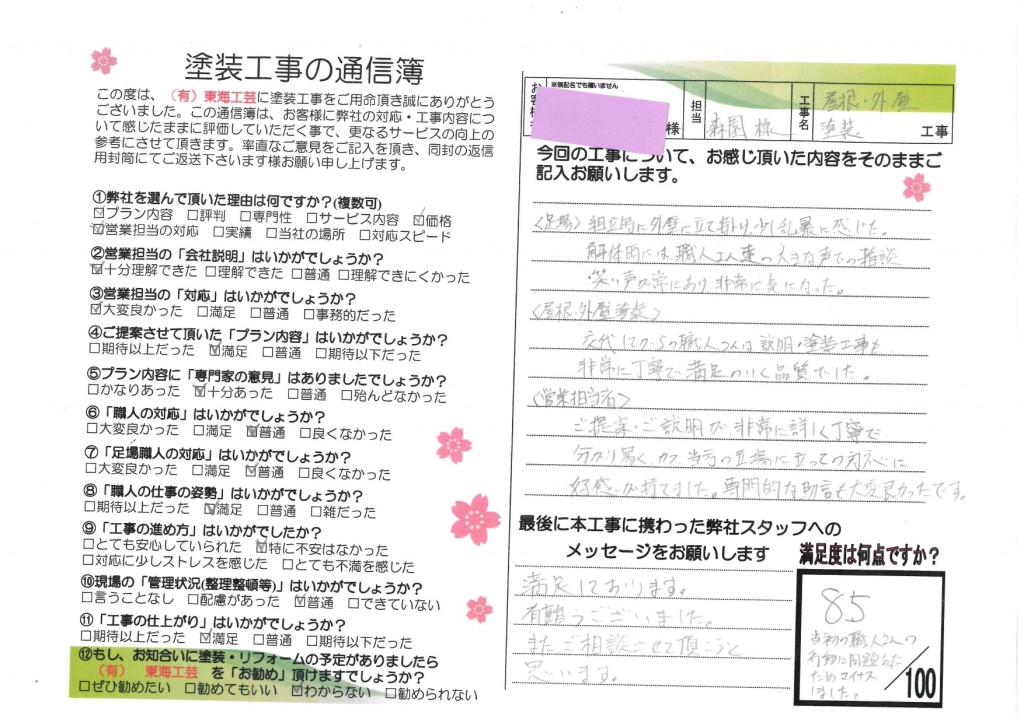 塗装工事の通信簿
この度は、(有)東海工芸に塗装工事をご用命頂き誠にありがとう
ございました。この通信簿は、お客様に弊社の対応・工事内容に
ついて感じたままに評価していただく事で、更なるサービスの向上の
参考にさせて頂きます。率直なご意見をご記入を頂き、同封の返信
用封筒にてご返送下さいます様お願い申し上げます。
①弊社を選んで頂いた理由は何ですか?(複数可)
☑プラン内容 □評判 □専門性 □サービス内容 ☑価格
☑営業担当の対応 □実績 □当社の場所 □対応スピード
②営業担当の「会社説明」はいかがでしょうか?
☑十分理解できた □理解できた □普通 □理解できにくかった
③営業担当の「対応」はいかがでしょうか?
☑大変良かった □満足 □普通 □事務的だった
④ご提案させて頂いた「プラン内容」はいかがでしょうか?
□期待以上だった ☑満足 □普通 □期待以下だった
⑤プラン内容に「専門家の意見」はありましたでしょうか?
□かなりあった ☑十分あった □普通 □殆んどなかった
⑥「職人の対応」はいかがでしょうか?
□大変良かった □満足 ☑普通 □良くなかった
⑦「足場職人の対応」はいかがでしょうか?
□大変良かった □満足 ☑普通 □良くなかった
⑧「職人の仕事の姿勢」はいかがでしょうか?
□期待以上だった ☑満足 □普通 □雑だった
⑨「工事の進め方」はいかがでしたか?
□とても安心していられた ☑特に不安はなかった
□対応に少しストレスを感じた □とても不満を感じた
⑩現場の「管理状況(整理整頓等)」はいかがでしょうか?
□言うことなし □配慮があった ☑普通 □できていない
⑪「工事の仕上がり」はいかがでしょうか?
□期待以上だった ☑満足 □普通 □期待以下だった
⑫もし、お知合いに塗装・リフォームの予定がありましたら
(有) 東海工芸 を「お勧め」頂けますでしょうか?
□ぜひ勧めたい □勧めてもいい ☑わからない □勧められない
※無記名でも構いません
様 担当 森園 様 工事名 屋根・外壁
塗装 工事
今回の工事について、お感じ頂いた内容をそのままご
記入お願いします。
〈足場〉組立時に外壁に立て掛け、少し乱暴に感じた。
解体時には、職人さん達の大きな声での雑談
・笑い声が常にあり非常に気になった。
〈屋根・外壁塗装〉
交代してからの職人さんは説明・塗装工事も
非常に丁寧で満足のいく品質でした。
〈営業担当者〉
ご提案・ご説明が非常に詳しく丁寧で
分かり易く、かつ、当方の立場に立っての対応に
好感が持てました。専門的な助言も大変良かったです。
最後に本工事に携わった弊社スタッフへの
メッセージをお願いします
満足しております。
有難うございました。
またご相談させて頂こうと
思います。
満足度は何点ですか?
85
当初の職人さんの
行動に問題あった
ためマイナス
しました。
/100